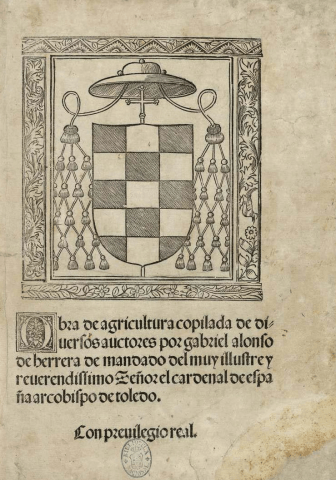 Obra de agricultura copilada de di-
uersos auctores por gabriel alonso
de herrera de mandado del muy illustre y
reuerendissimo Señor el cardenal de espa
ña arcobispo de toledo.
Con preuilegio real.